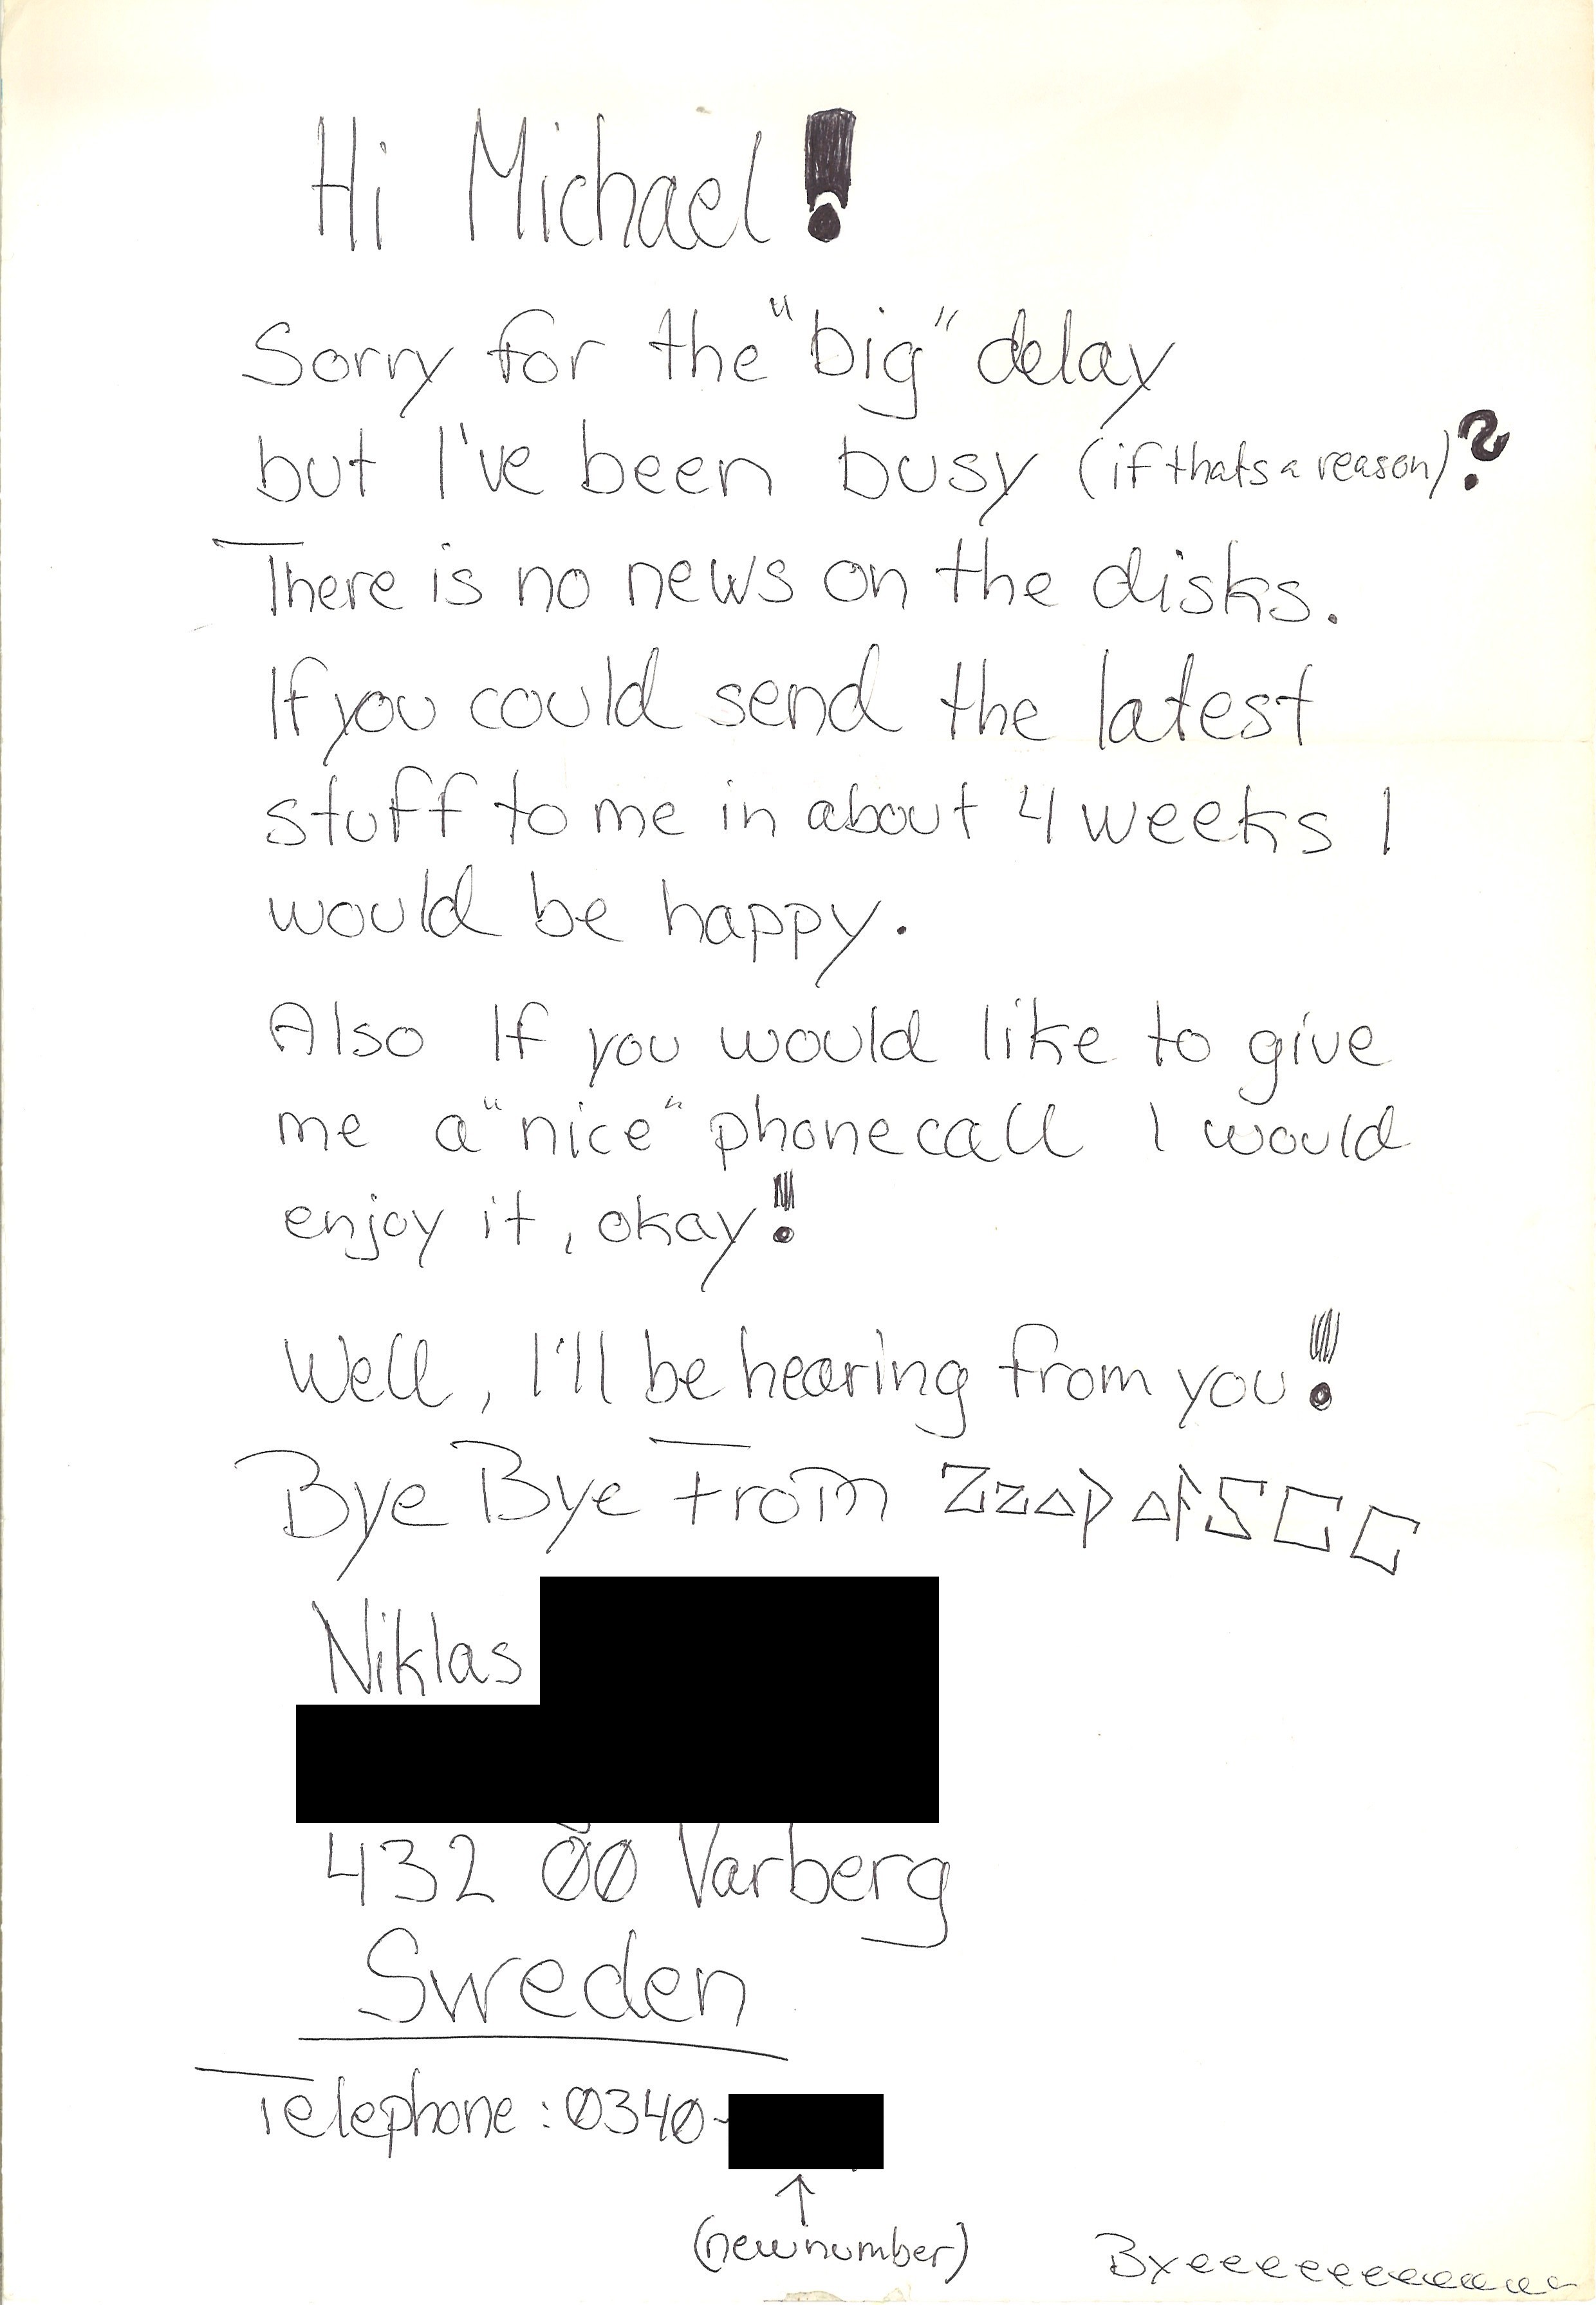 Hi Michael!
Sorry for the "big" delay
but I've been busy (if thats a reason)?
There is no news on the disks.
If you could send the latest
stuff to me in about 4 weeks I
would be happy.
Also If you would like to give
me a "nice" phonecall I would
enjoy it, okay!
Well, I'll be hearing from you!
Bye Bye From Zzap of SCC
Niklas
432 00 Varberg
Sweden
Telephone: 0340-
(new number)
Byeeeeeeeeeeeee